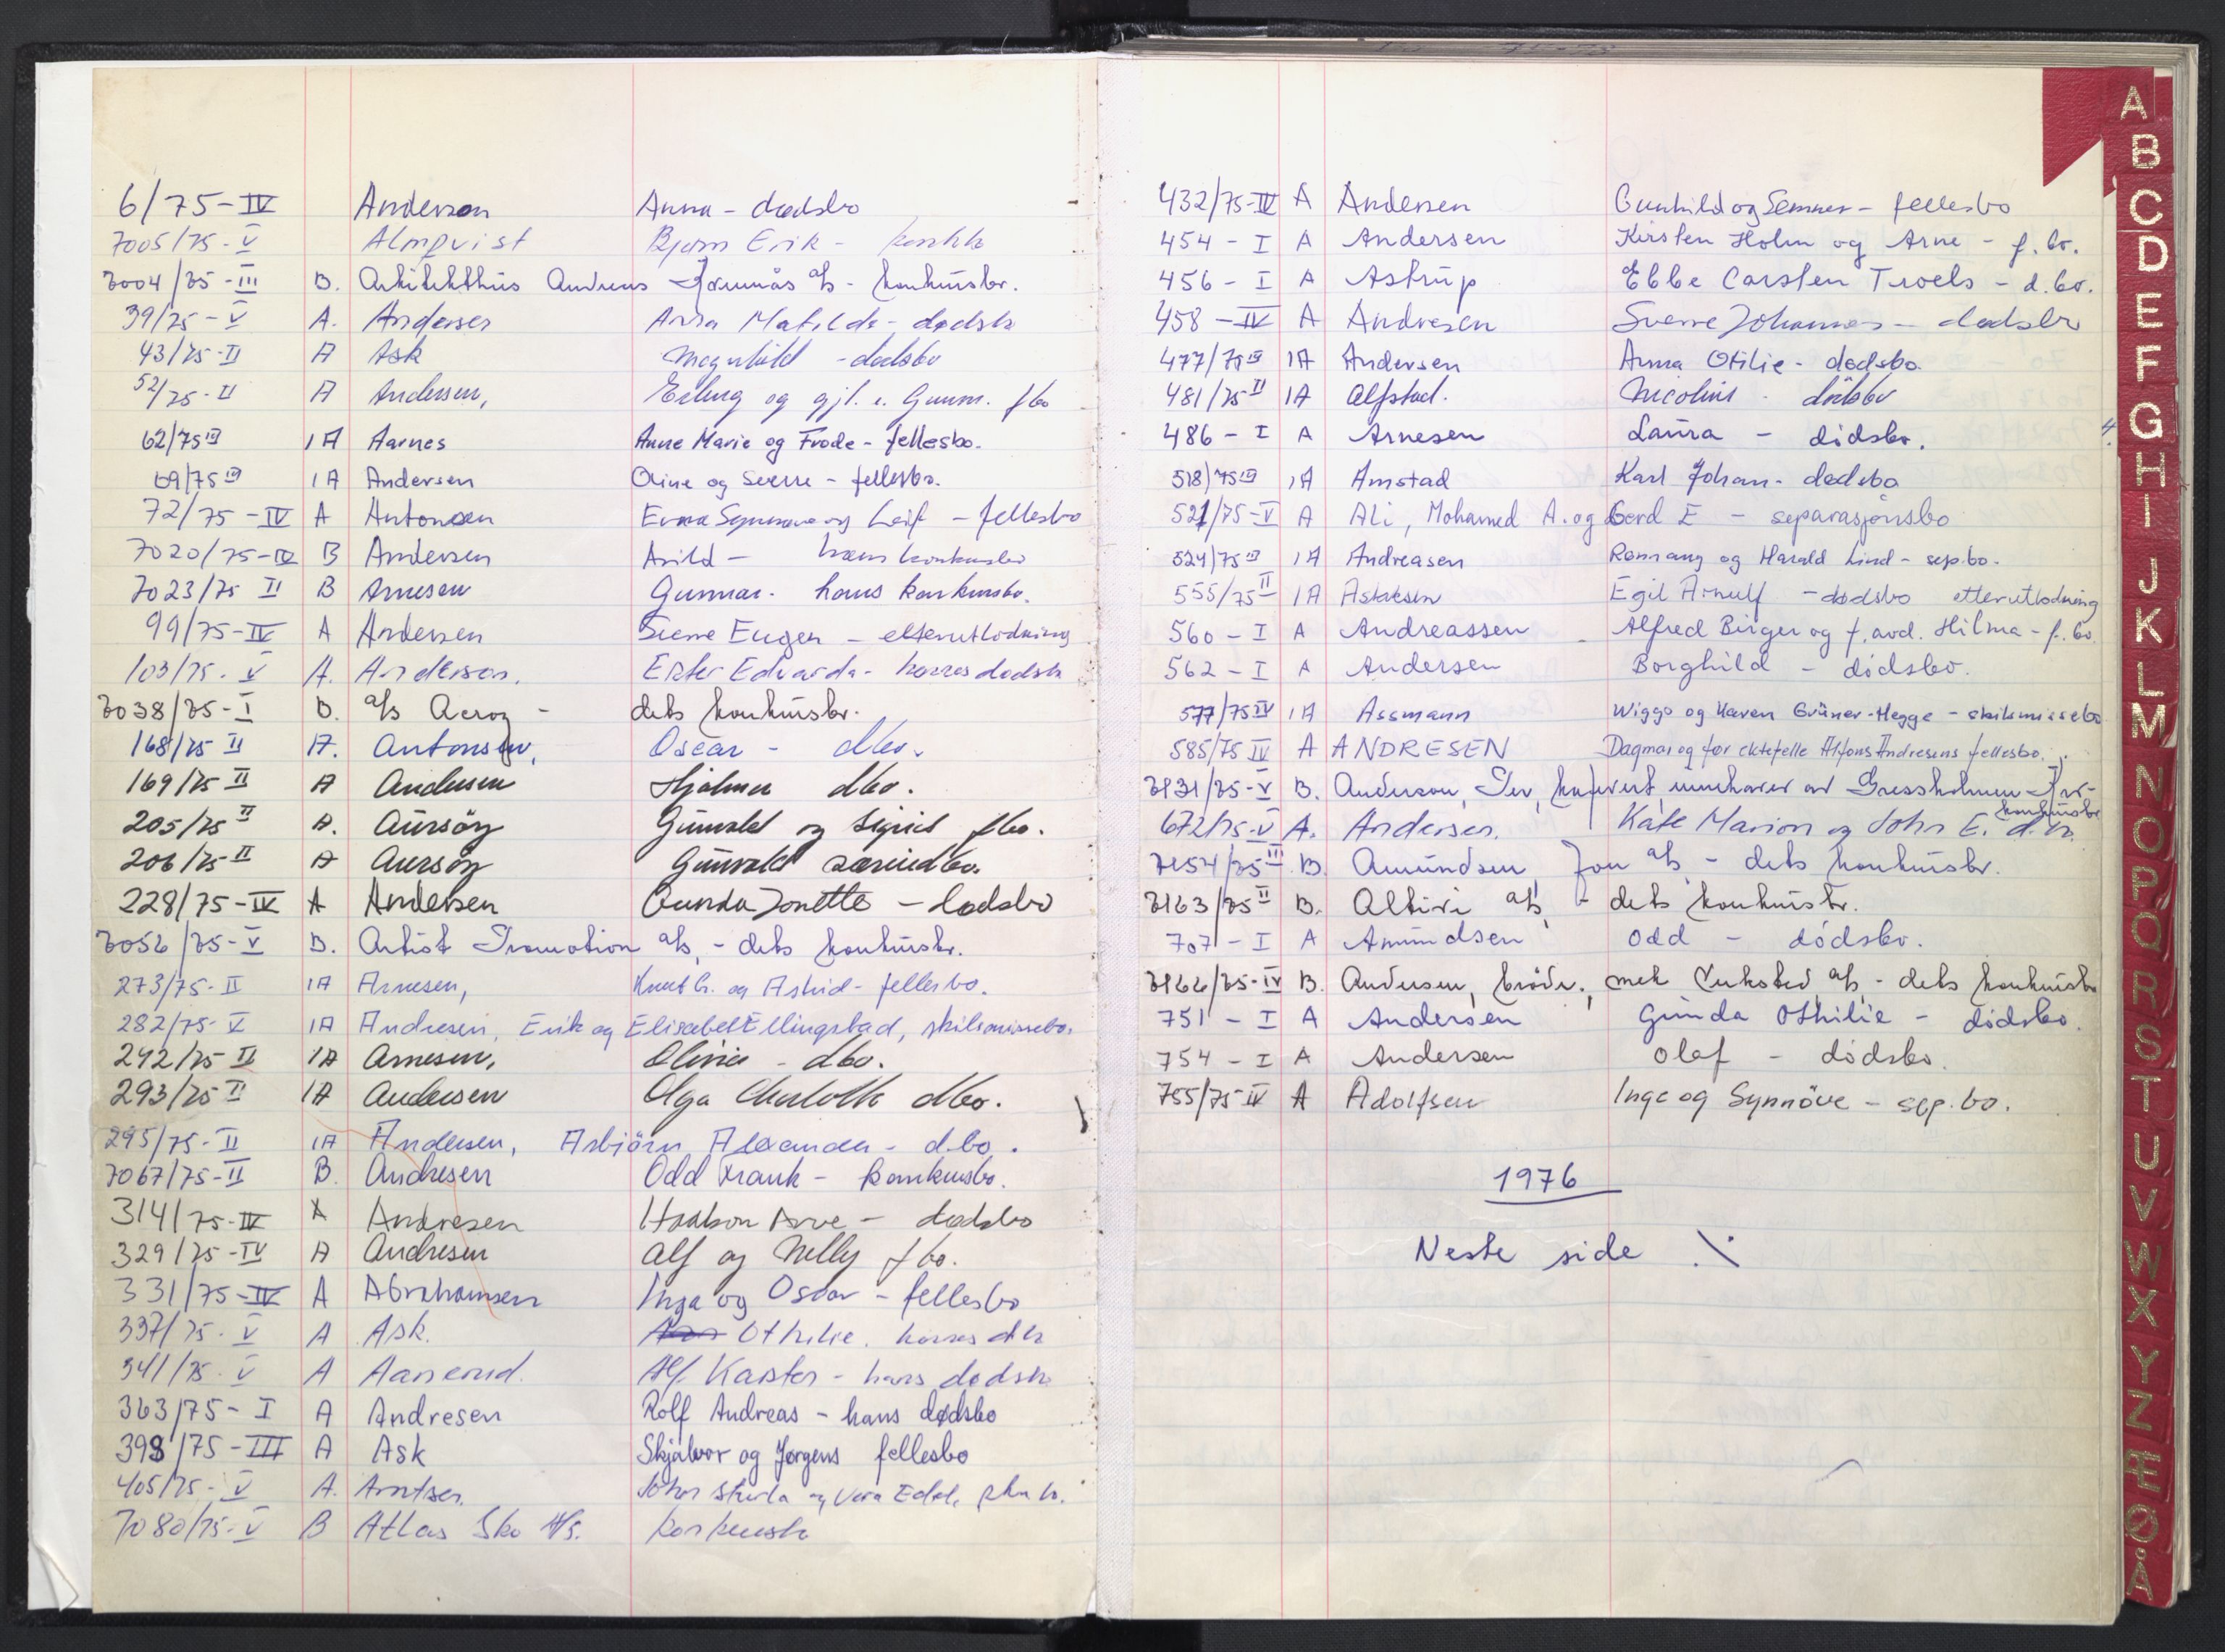 6/75-IV Andersen Anna - dødsbo
7005/75-V Almqvist Bjørn Erik -
7004/75-III B. Arkitekthus Andreas a/s - konkursbo.
39/75-V A. Andersen Anna Matilde - dødsbo
43/75-II A Ask Magnhild - dødsbo
52/75-II A Andersen, Erling og gjl. e. Gunnn. fbo
62/75 IV 1A Aarnes Anne Marie og Frode - fellesbo.
69/75 IV 1A Andersen Oline og Sverre - fellesbo.
72/75-IV A Antonsen Erna Synnøve og Leif - fellesbo
7020/75-IV B Andersen Arild - hans konkursbo
7023/75 II B Arnesen Gunnar. hans konkursbo.
99/75-IV A Andersen Sverre Eugen - etterutlodning
103/75-V A. Anderson. Ester Edvarda - hennes dødsbo
7038/75-I B. a/s Acroy - dets konkursbo.
168/75 II A. Antonsen, Oscar - dbo.
169/75 II A Andersen Hjalmar dbo.
205/75 II A. Aursöy Gunvald og Sigrid fbo.
206/75 II A Aursöy Gunvald særeiebo.
228/75-IV A Andersen Gunda Jonette - dødsbo
7056/75-V B. Artist Promotion a/s, - dets konkursbo.
273/75-II 1A Arnesen, Knut G. og Astrid - fellesbo.
282/75-V 1A Andresen, Erik og Elisabet Ellingstad, skilsmissebo.
292/75 II 1A Arnesen, Olivia - dbo.
293/75 II 1A Andersen Olga Charlotte dbo.
295/75-II 1A Andersen, Asbjörn Alexander - d.bo.
7067/75-II B. Andresen Odd Frank - konkursbo.
314/75-IV A Andresen Haakon Arve - dødsbo
329/75-IV A Andresen Alf og Nelly fbo.
331/75-IV A Abrahamsen Inga og Oscar - fellesbo
337/75-V A Ask. Othilie. hennes dbo
341/75-V A Aanerud. Alf Karsten - hans dødsbo
363/75-I A Andresen Rolf Andreas - hans dødsbo
398/75-III A Ask Skjalvor og Jørgens fellesbo
405/75-V A. Arntsen. Johan Sturla og Vera Edel,
7080/75-V B Atlas Sko A/S. konkursbo
432/75-IV A Andersen Gunhild og Senner - fellesbo
454 - I A Andersen Kirsten Holm og Arne - f.bo.
456 - I A Astrup Ebbe Carsten Troels - d.bo.
458 - IV A Andresen Sverre Johannes - dødsbo
477/75 IV 1A Andersen Anna Otilie - dødsbo.
481/75 II 1A Alfstad. Nicolius - dödsbo
486 - I A Arnesen Laura - dödsbo.
518/75 IV 1A Amstad Karl Johan - dødsbo
521/75-V A Ali, Mohamed A. og Gerd E - separasjonsbo
524/75 IV 1A Andreasen Romany og Harald Lind - sep.bo.
555/75 II 1A Askaksen Egil Arnulf - dødsbo etterutlodning
560 - I A Andreassen Alfred Birger og f. avd. Hilma - f.bo.
562 - I A Andersen Borghild - dödsbo.
577/75 IV 1A Assmann Wiggo og Karen Grüner-Hegge - skilsmissebo
585/75 IV A ANDRESEN Dagmar og før ektefelle Alfons Andresens fellesbo.
7131/75-V B. Anderson, Per, innehaver av Gressholmen Kro - konkursbo
672/75-V A. Andersen. Kate Marion og John E. d.bo.
7154/75 II B. Amundsen, Jon a/s, - dets konkursbo.
7163/75 II B. Altivi a/s, - dets konkursbo.
707 - I A Amundsen Odd - dödsbo.
7166/75-IV B. Andersen, brødr., mek verksted a/s, - dets konkursbo
751 - I A Andersen Gunda Othilie - dödsbo.
754 - I A Andersen Olaf - dödsbo.
755/75-IV A Adolfsen Inge og Synnöve - sep.bo.
1976
Neste side ./.
A
B
C
D
E
F
G
H
I
J
K
L
M
N
O
P
Q
R
S
T
U
V
W
X
Y
Z
Æ
Ø
Å